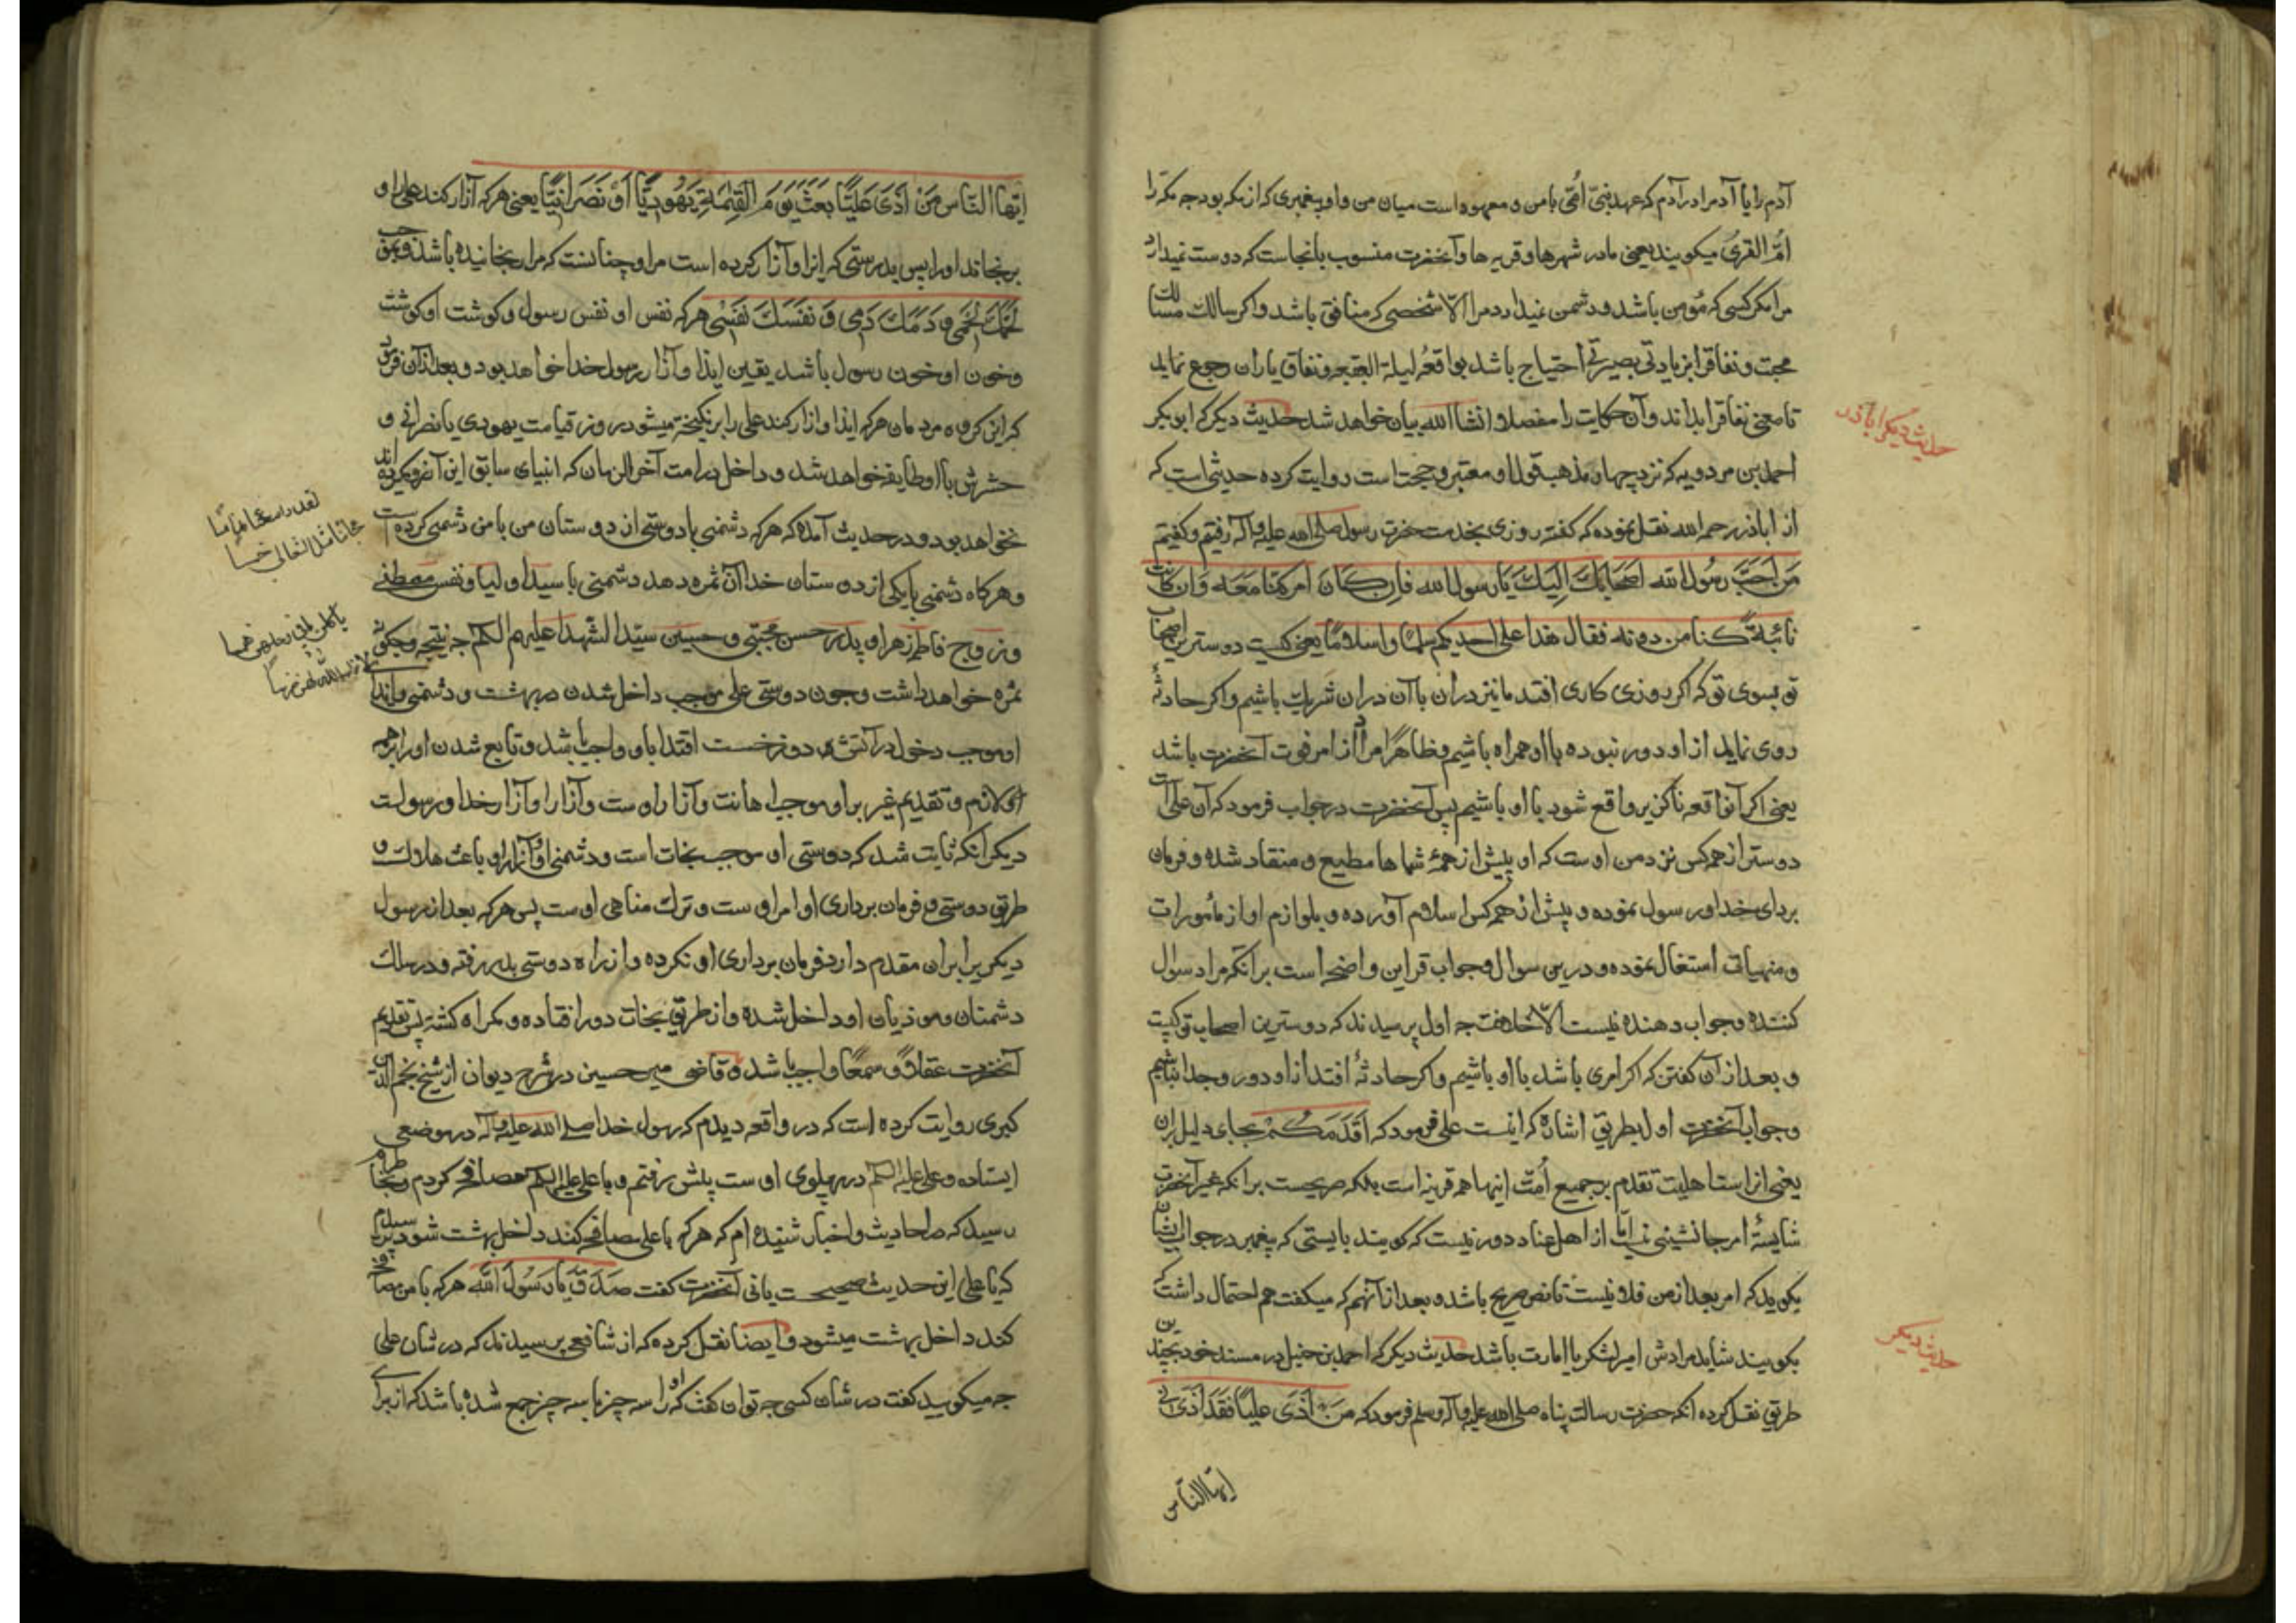 آدم را یا آدم را در آدم که عهد نبی امّی با من و معهود است میان من و او پیغمبری که از مکه بود چه مکه را
امّ القری میکویند یعنی مادر شهرها و قریه ها و آنحضرت منسوب بانجاست که دوست نمیدارد
مرا مکر کسی که مؤمن باشد و دشمن نمیدارد مرا الّا شخصی که منافق باشد و اکر سالک مسالک
محبت و نفاق را بزیادتی بصیرتی احتیاج باشد بواقعهٔ لیلة العقبه و نفاق یاران رجوع نماید
تا معنی نفاق را بداند و آن حکایت را مفصلا انشاالله بیان خواهد شد حدیث دیکر که ابو بکر
احمد بن مردویه که نزد چهار مذهب قول او معتبر و حجت است روایت کرده حدیثی است که
از اباذر رحمه الله نقل نموده که گفته روزی بخدمت حضرت رسول صلی الله علیه و آله رفتیم و کفتیم
مَن اَحَبُّ رسُول الله اَصحَابِكَ اِلَیكَ یَا رسول الله فاِن كَانَ امر كنّا مَعَه وَ ان کانت
نائبة كنا من دونه فقال هذا علی احدیکم سلما و اسلاما یعنی کیست دوسترین اصحاب
تو بسوی تو که اکر روزی کاری افتد ما نیز دران با آن دران شریک باشیم و اکر حادثهٔ
روی نماید از او دور نبوده با او همراه باشیم و ظاهرًا مراد از امر فوت آنحضرت باشد
یعنی اکر آن واقعه ناکزیر واقع شود با او باشیم پس آنحضرت در جواب فرمود که آن علی است
دوستر از همه کس نزد من اوست که او پیش از همهٔ شماها مطیع و منقاد شده و فرمان
بردای خدا و رسول نموده و پیش از همه کس اسلام آورده و بلوازم او از مأمورات
و منهیات اشتغال نموده و درین سوال و جواب قراین واضحه است بر آنکه مراد سوال
کننده و جواب دهنده نیست الّا خلافت چه اول پرسیدند که دوسترین اصحاب تو کیست
و بعد از آن کفتن که اکر امری باشد با او باشیم و اکر حادثهٔ افتد از او دور و جدا نباشیم
و جواب آنحضرت اول بطریق اشاره که اینست علی فرمود که اَقدَمَكُم بجای دلیل بران
یعنی از استاهلیت تقدم بر جمیع اُمّت اینها همه قرینه است بلکه صریحست بر انکه غیر آنحضرت
شایستهٔ امر جانشینی نیست امّا از اهل عناد دور نیست که کویند بایستی که پیغمبر در جواب ایشان
بکوید که امر بعد از من فلانیست تا نص صریح باشد و بعد از آنهم که میکفت هم احتمال داشت که
بکویند شاید مرادش امیر لشکر یا امارت باشد حدیث دیکر که احمد بن حنبل در مسند خود بچندین
طریق نقل کرده انکه حضرت رسالت پناه صلی الله علیه و آله و سلم فرمود که مَن اَذَی علیًا فَقَد اَذَی
ایّها النّاس
حدیث دیکر اباذر
حدیث دیکر
ایّها النّاس مَن اَذَی عَلیًّا بعثَ یَومَ القِیٰمَةِ یَهُودِیًّا اَو نَصرَانِیًّا یعنی هر که آزار کند علی را و
برنجاند او را پس بدرستی که ایذا و آزار کرده است مرا و چنانست که مرا رنجانیده باشد و بموجب
لَحمُكَ لَحمِی وَ دَمُكَ دَمِی وَ نَفسُكَ نَفسِی هر که نفس او نفس رسول و کوشت او کوشت
و خون او خون رسول باشد یقین ایذا و آزار رسول خدا خواهد بود و بعد از آن فرمود
که این کروه مردمان هر که ایذا و ازار کند علی را بر نکیخته میشود در روز قیامت یهودی یا نصرانی و
حشرش با او طایفه خواهد شد و داخل در امت آخر الزمان که انبیای سابق این آرزو میکرده اند
نخواهد بود و در حدیث آمده که هر که دشمنی با دوستی از دوستان من با من دشمنی کرده است
و هرکاه دشمنی با یکی از دوستان خدا آن ثمره دهد دشمنی با سید اولیا و نفس مصطفی
و زوج فاطمه زهرا و پدر حسن مجتبی و حسین سید الشهدا علیهم السلم چه نتیجه و چکونه
ثمره خواهد داشت و چون دوستی علی موجب داخل شدن در بهشت و دشمنی و ایذای
او موجب دخول در آتش دوزخست اقتدا باو واجب باشد و تابع شدن او را بر همه
لازم و تقدیم غیر بر او موجب اهانت و آزار اوست و آزار او آزار خدا و رسولست
دیکر آنکه ثابت شد که دوستی او موجب نجات است و دشمنی او و آزار او باعث هلاک و
طریق دوستی و فرمان برداری اوامر اوست و ترک مناهی اوست پس هر که بعد از رسول
دیکریرا بران مقدم دارد فرمان برداری او نکرده و از راه دوستی بدر رفته و در سلک
دشمنان و موذیان او داخل شده و از طریق نجات دور افتاده و کمراه کشته پس تقدیم
آنحضرت عقلًا و سمعًا واجب باشد و قاضی میر حسین در شرح دیوان از شیخ نجم الدین
کبری روایت کرده است که در واقعه دیدم که رسول خدا صلی الله علیه و آله در موضعی
ایستاده و علی علیه السلم در پهلوی اوست پیش رفتم و با علی علیه السلم مصافحه کردم و بخاطرم
رسید که در احادیث و اخبار شنیده ام که هر که با علی مصافحه کند داخل بهشت شود پرسیدم
که یا علی این حدیث صحیحست یا نی آنحضرت کفت صَدَقَ یا رَسُولَ الله هر که با من مصافحه
کند داخل بهشت میشود و ایضا نقل کرده که از شافعی پرسیدند که در شان علی
چه میکویید کفت در شان کسی چه توان کفت که او را سه چیز با سه چیز جمع شده باشد که از برای